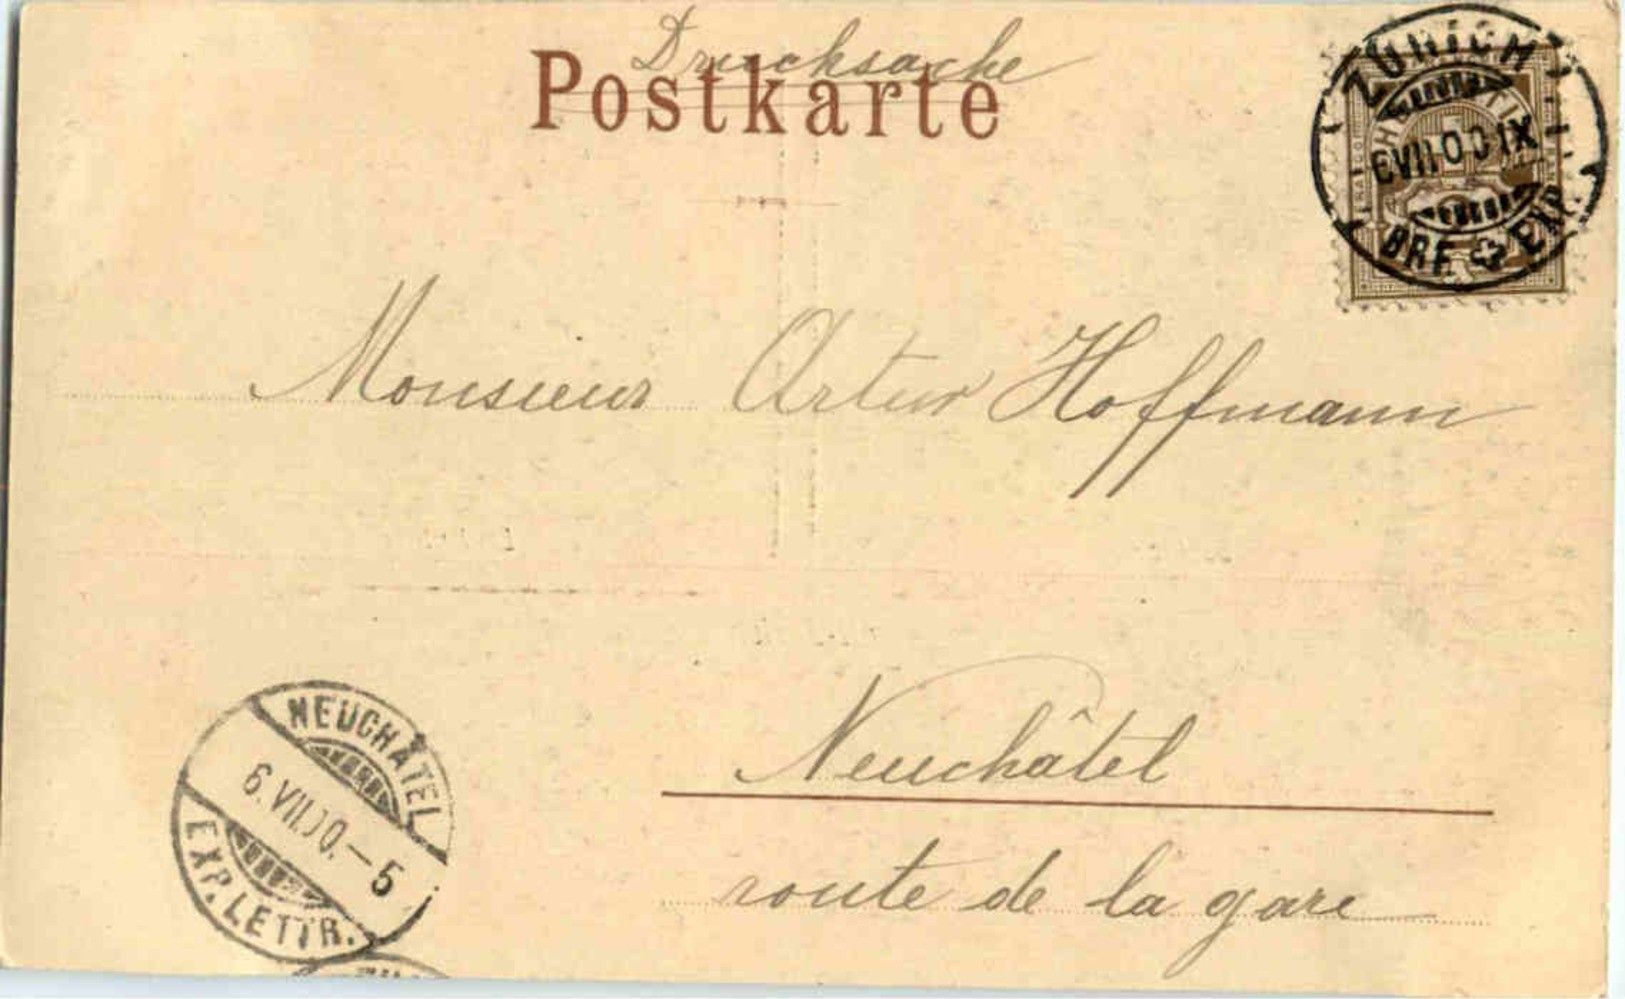 Drucksache
Postkarte
ZÜRICH
6 VII 00 IX
BRF. EXP.
Monsieur Artur Hoffmann
Neuchâtel
route de la gare
NEUCHÂTEL
6.VII.00.—5
EXP. LETTR.